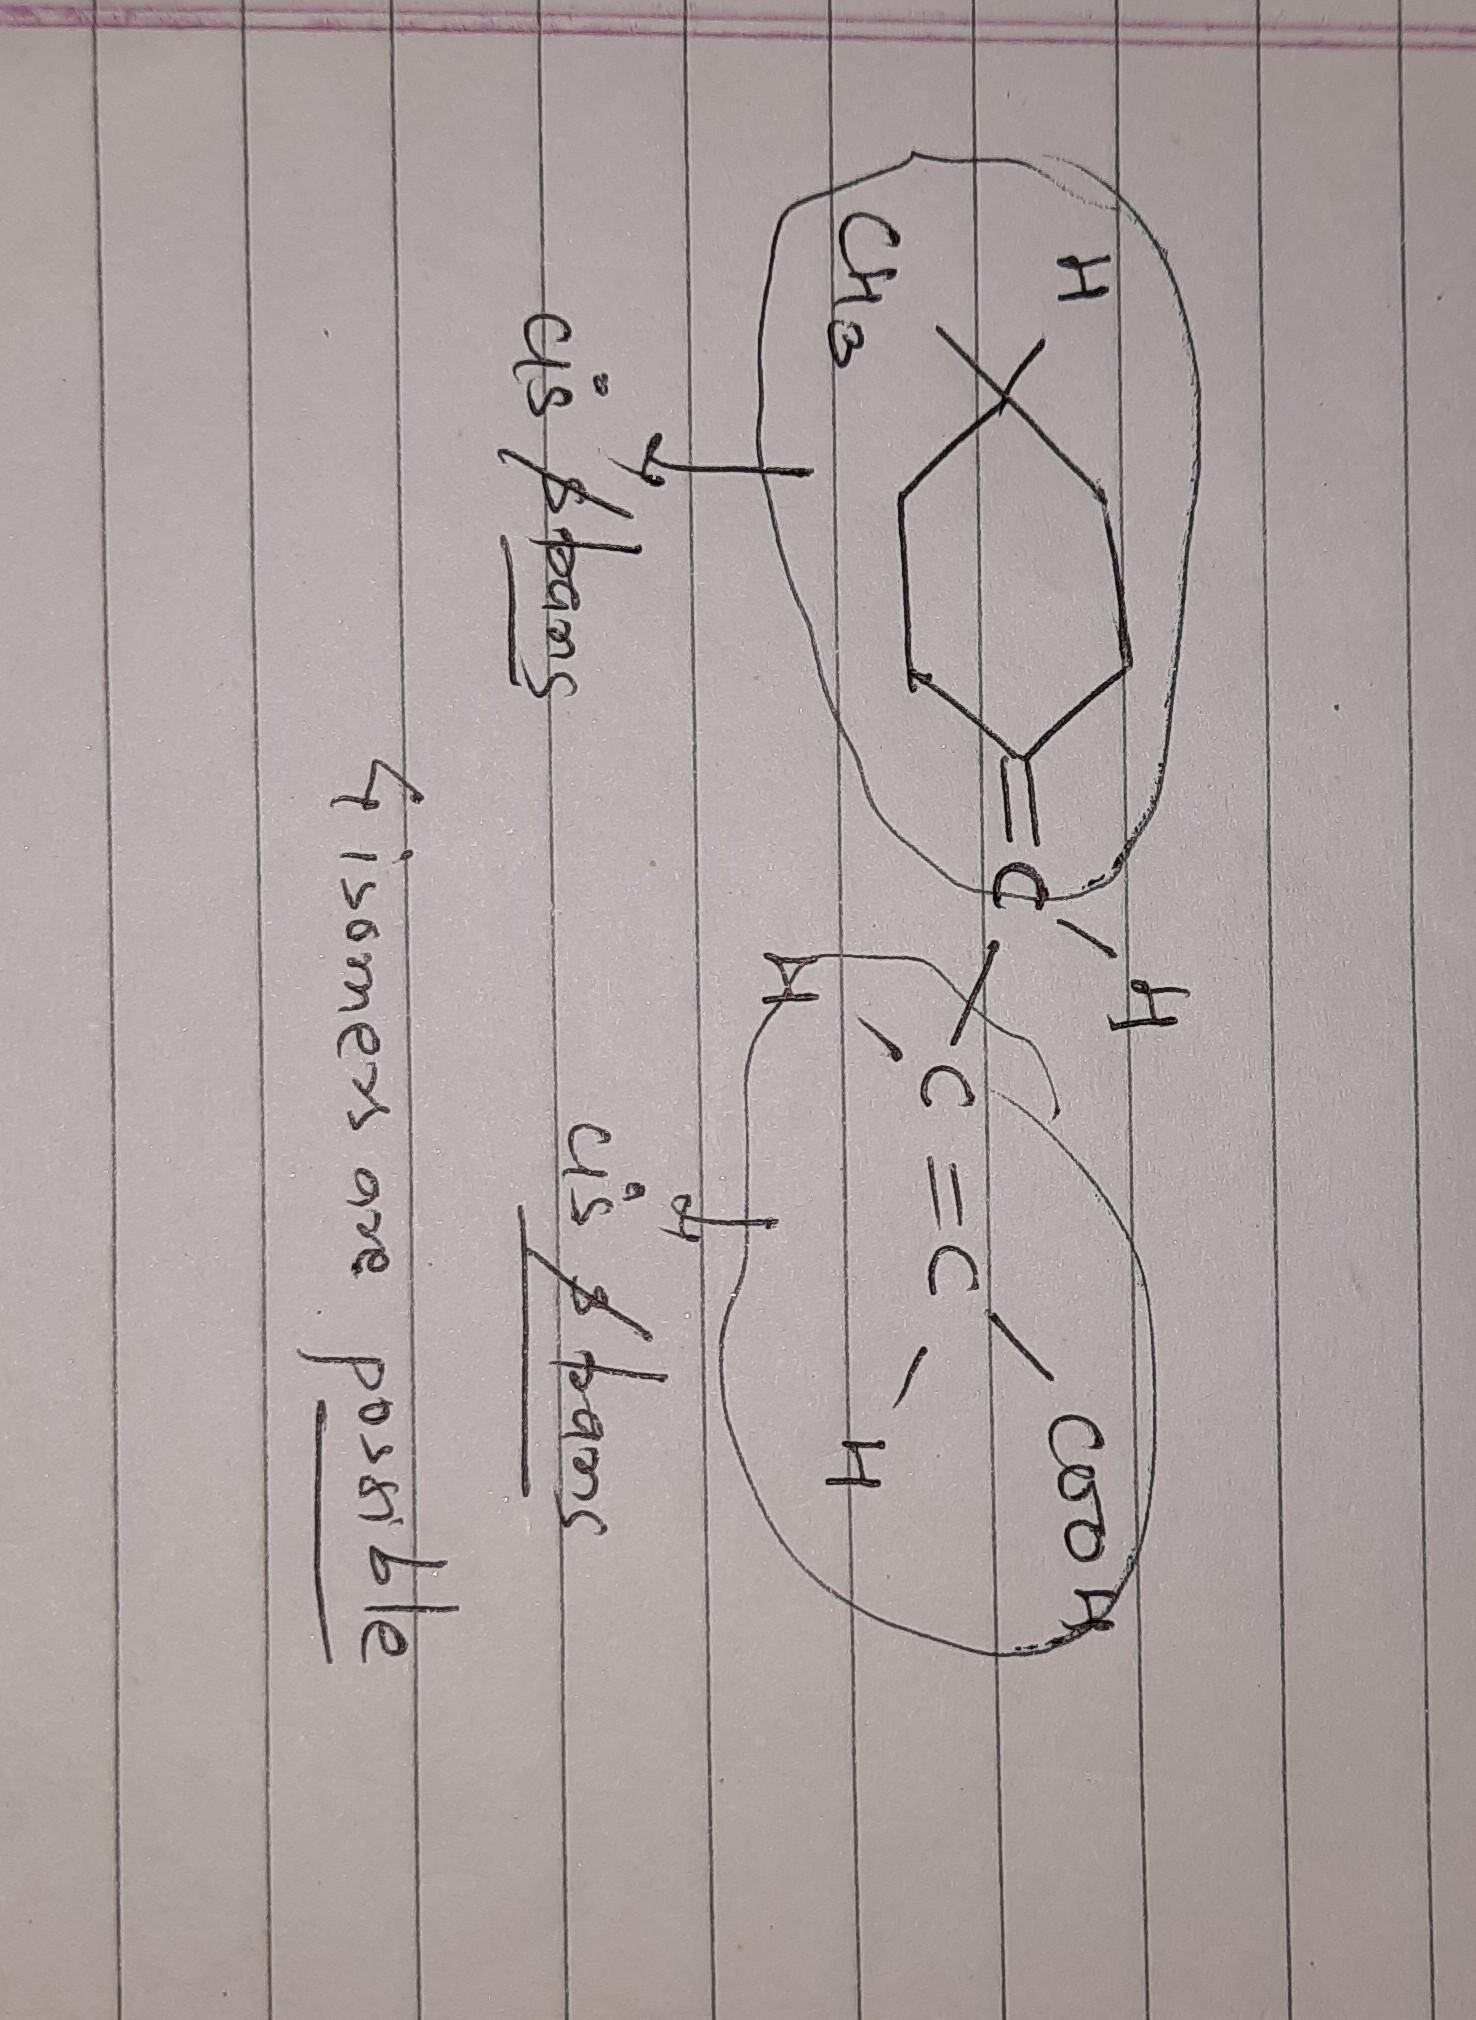 H
CH3
C
H
H
C = C
COOH
H
cis & trans
cis & trans
4 isomers are possible